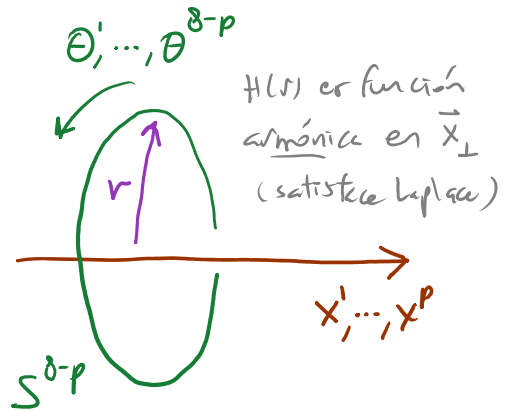 θ¹, ..., θ⁸⁻ᵖ
H(r) es función
armónica en x⃗⊥
(satisface Laplace)
r
x¹, ..., xᵖ
S⁸⁻ᵖ